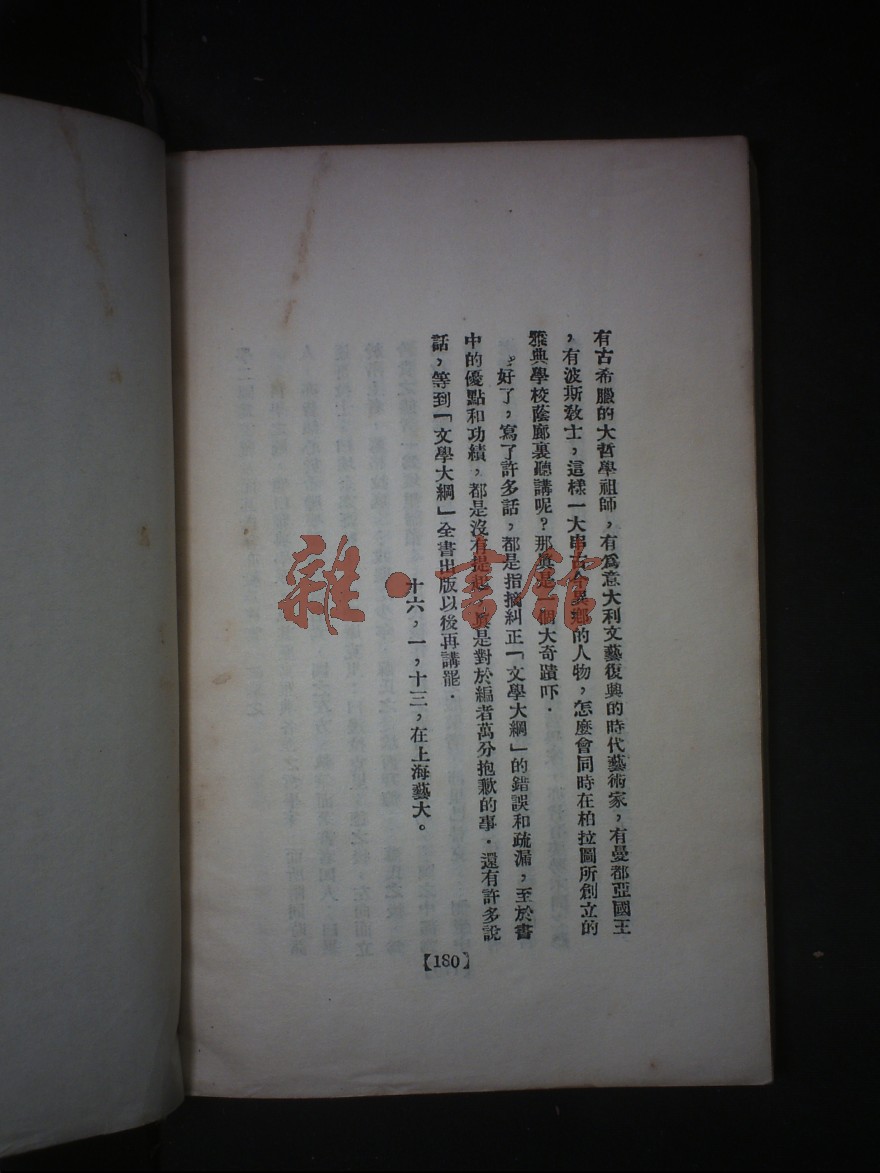 有古希臘的大哲學祖師，有爲意大利文藝復興的時代藝術家，有曼都亞國王
，有波斯教士，這樣一大串古今異鄉的人物，怎麼會同時在柏拉圖所創立的
雅典學校蔭廊裏聽講呢？那眞是一個大奇蹟吓．
好了，寫了許多話，都是指摘糾正「文學大綱」的錯誤和疏漏，至於書
中的優點和功績，都是沒有提起，眞是對於編者萬分抱歉的事．還有許多說
話，等到「文學大綱」全書出版以後再講罷．
十六，一，十三，在上海藝大。
【180】
雜·書館